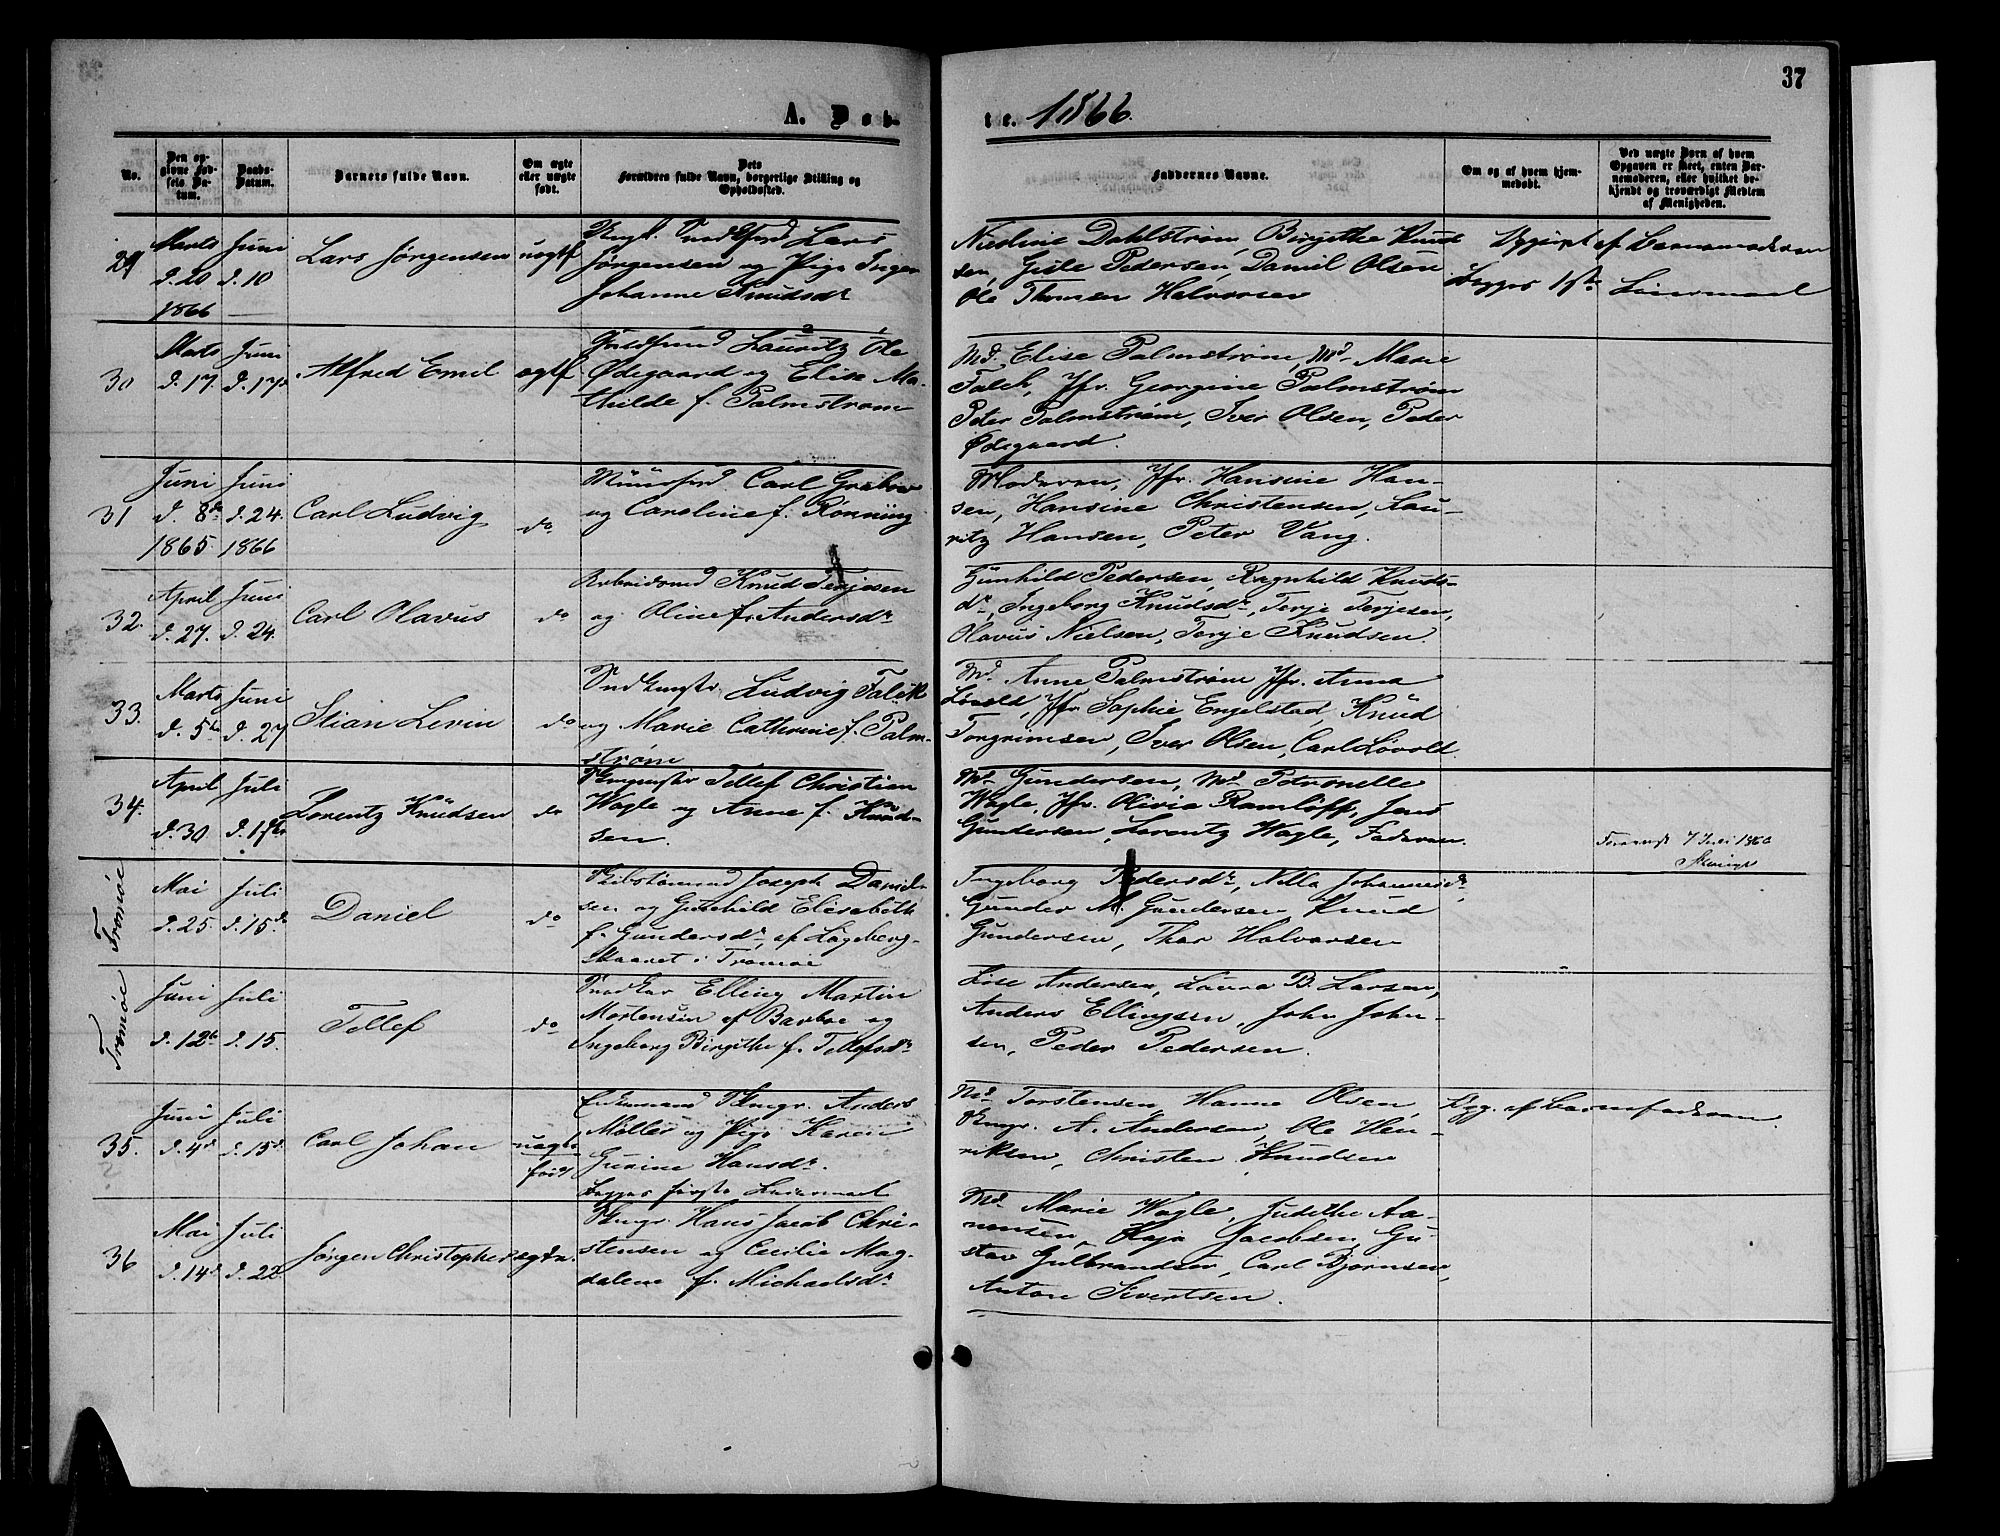 37
A. Døb-
te. 1866.
No.
Den op-
givne Fød-
sels Da-
tum.
Daabs-
Datum.
Barnets fulde Navn.
Om ægte
eller uægte
født.
Dets
Forældres fulde Navn, borgerlige Stilling og
Opholdssted.
Faddernes Navne.
Om og af hvem hjem-
medøbt.
Ved uægte Børn af hvem
Opgaven er skeet, enten Bar-
nemoderen, eller hvilket be-
kjendt og troværdigt Medlem
af Menigheden.
29
Marts
d. 20
1866
Juni
d. 10
Lars Jørgensen
uægtf
Lars
Jørgensen og Pige Inger
Johanne Knudsdr
Nicoline Dahlstrøm, Birgithe Knud-
sen, Gisle Pedersen, Daniel Olsen
Ole Thomsen Halvorsen
Opgivet af Barnemoderen
Begges 1ste Leiermaal
30
Marts
d. 17.
Juni
d. 17de
Alfred Emil
ægtf.
Lauritz Ole
Ødegaard og Elise Ma-
thilde f. Palmstrøm
Md. Elise Palmstrøm, Md. Marie
Falck, Jfr. Georgine Palmstrøm
Peter Palmstrøm, Iver Olsen, Peder
Ødegaard.
31
Juni
d. 8de
1865.
Juni
d. 24.
1866
Carl Ludvig
do.
Muursvd Carl
og Caroline f. Rønning
Moderen, Jfr. Hansine Han-
sen, Hansine Christensen, Lau-
ritz Hansen, Peter Vang.
32.
April
d. 27.
Juni
d. 24.
Carl Olavus
do
Arbeidsmd Knud Terjesen
og Oline f. Andersdr
Gunhild Pedersen, Ragnhild Knuds-
dr, Ingeborg Knudsdr, Terje Terjesen,
Olavus Nielsen, Terje Knudsen.
33.
Marts
d. 5te
Juni
d. 27
Stian Levin
do
Ludvig Falck
og Marie Cathrine f. Palm-
strøm
Md. Anne Palmstrøm Jfr. Anna
Løvold, Jfr Sophie Engelstad, Knud
Torgrimsen, Iver Olsen, Carl Løvold.
34.
April
d. 30
Juli
d. 1ste
Lorentz Knudsen
do
Tellef Christian
Wagle og Anne f. Knud-
sen.
Md. Gundersen, Md. Petronelle
Wagle, Jfr. Olivia Ramløff, Jens
Gundersen, Lorentz Wagle, Faderen.
7 Juli 1866
Tromøe
Mai
d. 25.
Juli
d. 15de
Daniel
do
Skibstømmd Joseph Daniel-
sen og Gunhild Elisabeth
f. Gundersdr, af
Skaaret i Tromøe
Ingeborg Pedersdr, Nella Johannesdr,
Gunder M. Gundersen, Knud
Gundersen, Thor Halvorsen
Tromøe
Juni
d. 12te
Juli
d. 15.
Tellef
do
Elling Martin
Mortensen af Barboe og
Ingeborg Birgithe f. Tellefsdr
Lise Andersen, Laura B. Larsen,
Anders Ellingsen, John John-
sen, Peder Pedersen.
35.
Juni
d. 4de
Juli
d. 15de
Carl Johan
uægte
født
Enkemand Anders
Møller og Pige Karen
Gurine Hansdr.
Begges første Leiermaal
Md Torstensen, Hanne Olsen,
A. Andersen, Ole Hen-
riksen, Christen Knudsen
Opg. af Barnefaderen.
36
Mai
d. 14de
Juli
d. 22.
Jørgen Christopher
ægte.
Hans Jacob Chri-
stensen og Cecilie Mag-
dalene f. Michaelsdr
Md. Marie Wagle, Judithe Aa-
nonsen, Maja Jacobsen, Gu-
stav Gulbrandsen, Carl Bjørnsen,
Anton Sivertsen.